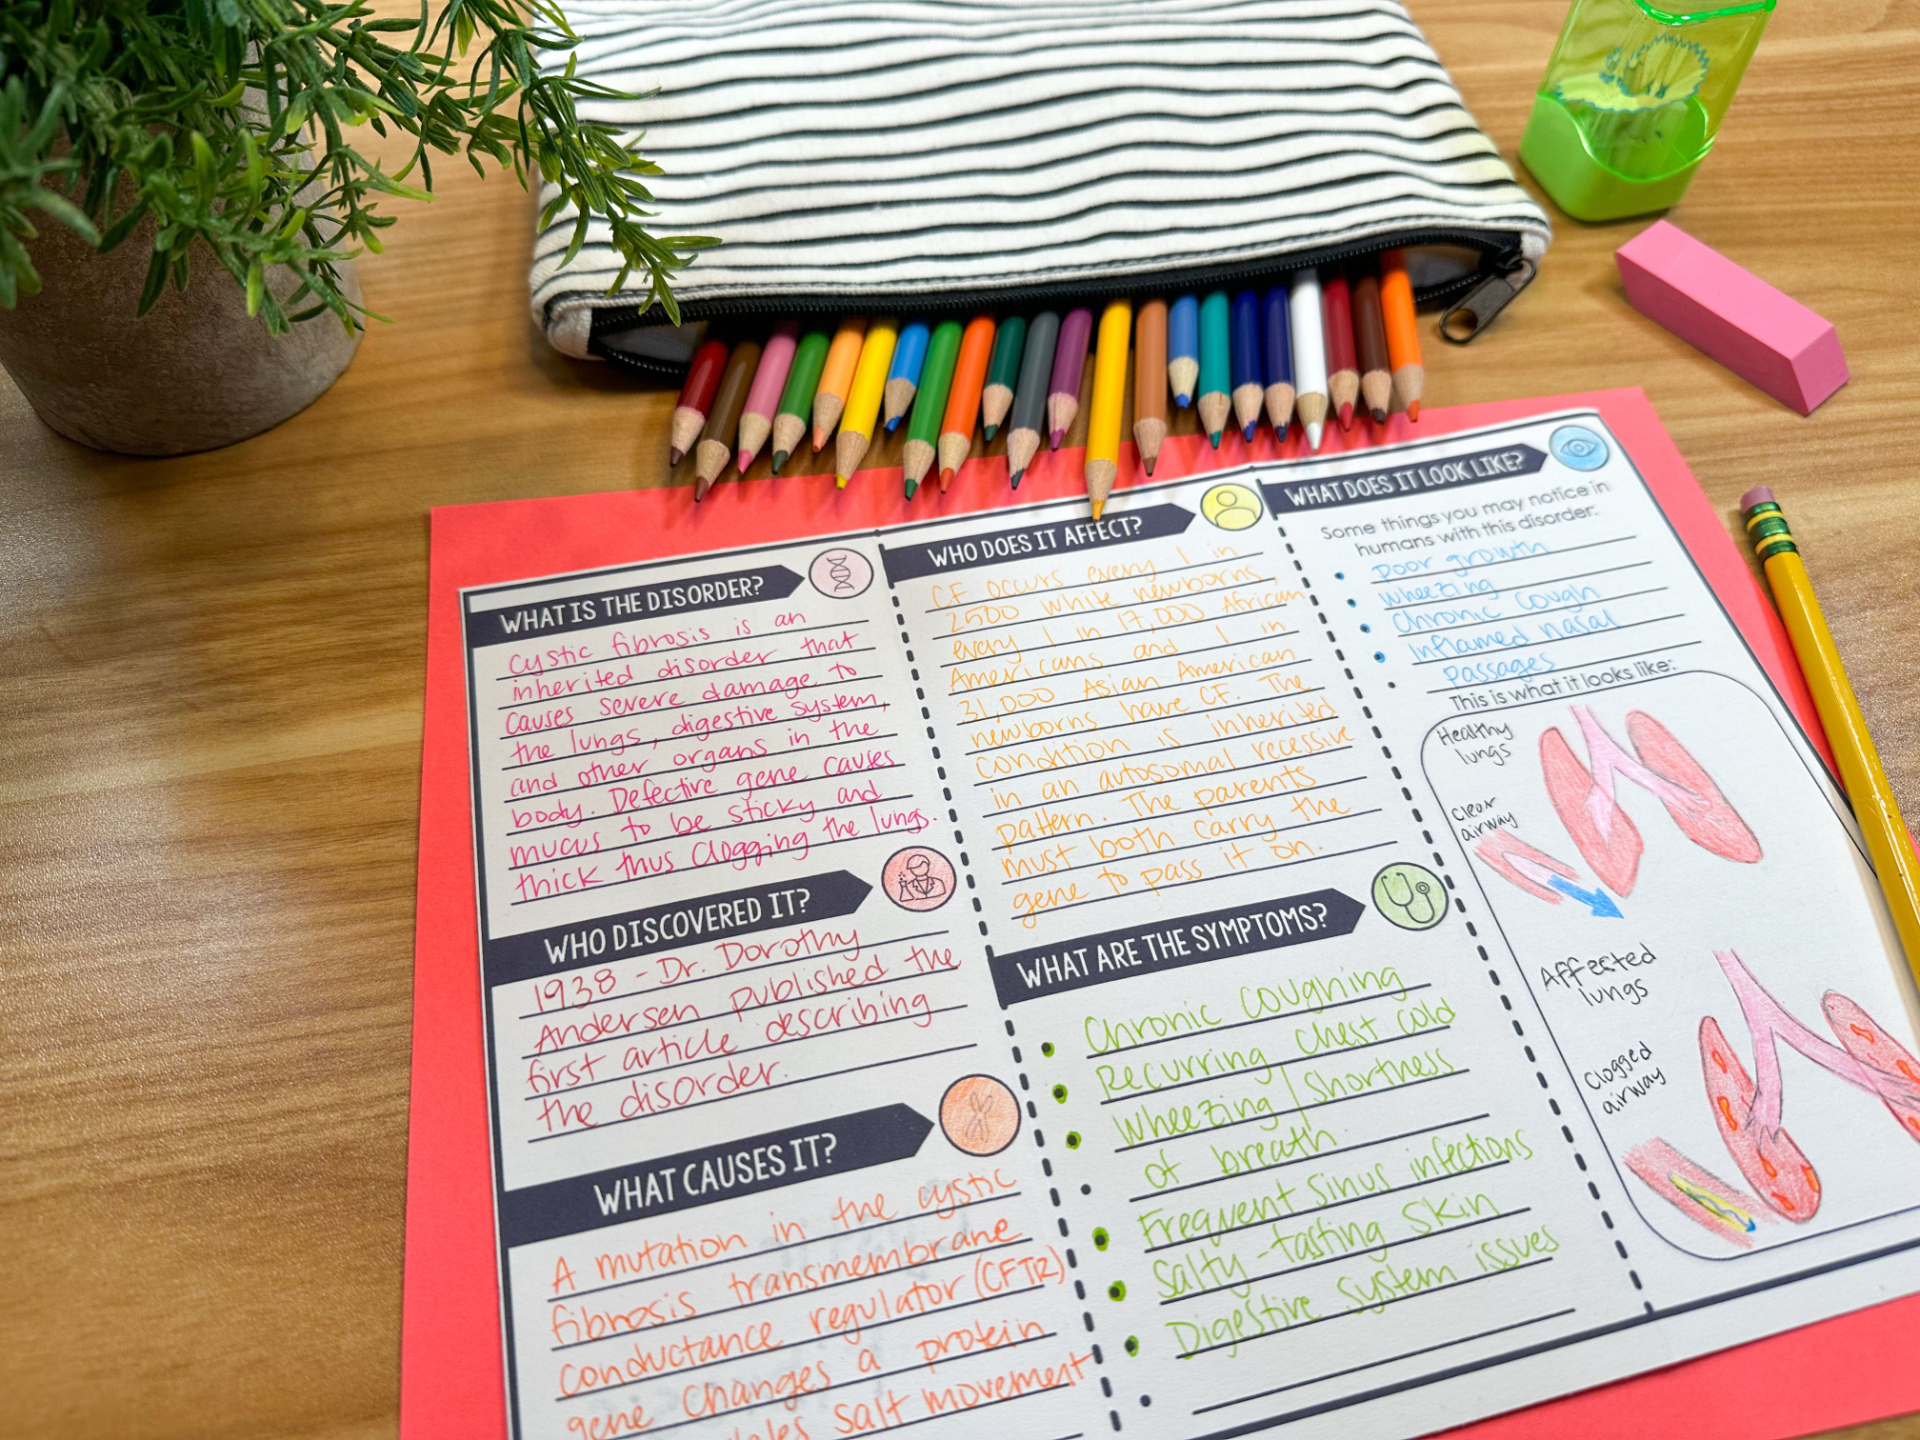 WHAT IS THE DISORDER?
Cystic fibrosis is an
inherited disorder that
causes severe damage to
the lungs, digestive system,
and other organs in the
body. Defective gene causes
mucus to be sticky and
thick thus clogging the lungs.
WHO DISCOVERED IT?
1938 - Dr. Dorothy
Andersen published the
first article describing
the disorder.
WHAT CAUSES IT?
A mutation in the cystic
fibrosis transmembrane
conductance regulator (CFTR)
gene changes a protein
salt movement
WHO DOES IT AFFECT?
CF occurs every 1 in
2500 white newborns,
every 1 in 17,000 African
Americans and 1 in
31,000 Asian American
newborns have CF. The
condition is inherited
in an autosomal recessive
pattern. The parents
must both carry the
gene to pass it on.
WHAT ARE THE SYMPTOMS?
Chronic coughing
Recurring chest cold
Wheezing / shortness
of breath
Frequent sinus infections
Salty-tasting skin
Digestive system issues
WHAT DOES IT LOOK LIKE?
Some things you may notice in
humans with this disorder:
Poor growth
Wheezing
Chronic cough
Inflamed nasal
passages
This is what it looks like:
Healthy
lungs
Clear
airway
Affected
lungs
Clogged
airway